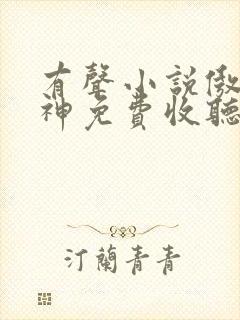 有聲小說傲
神免費收聽
汀蘭青青